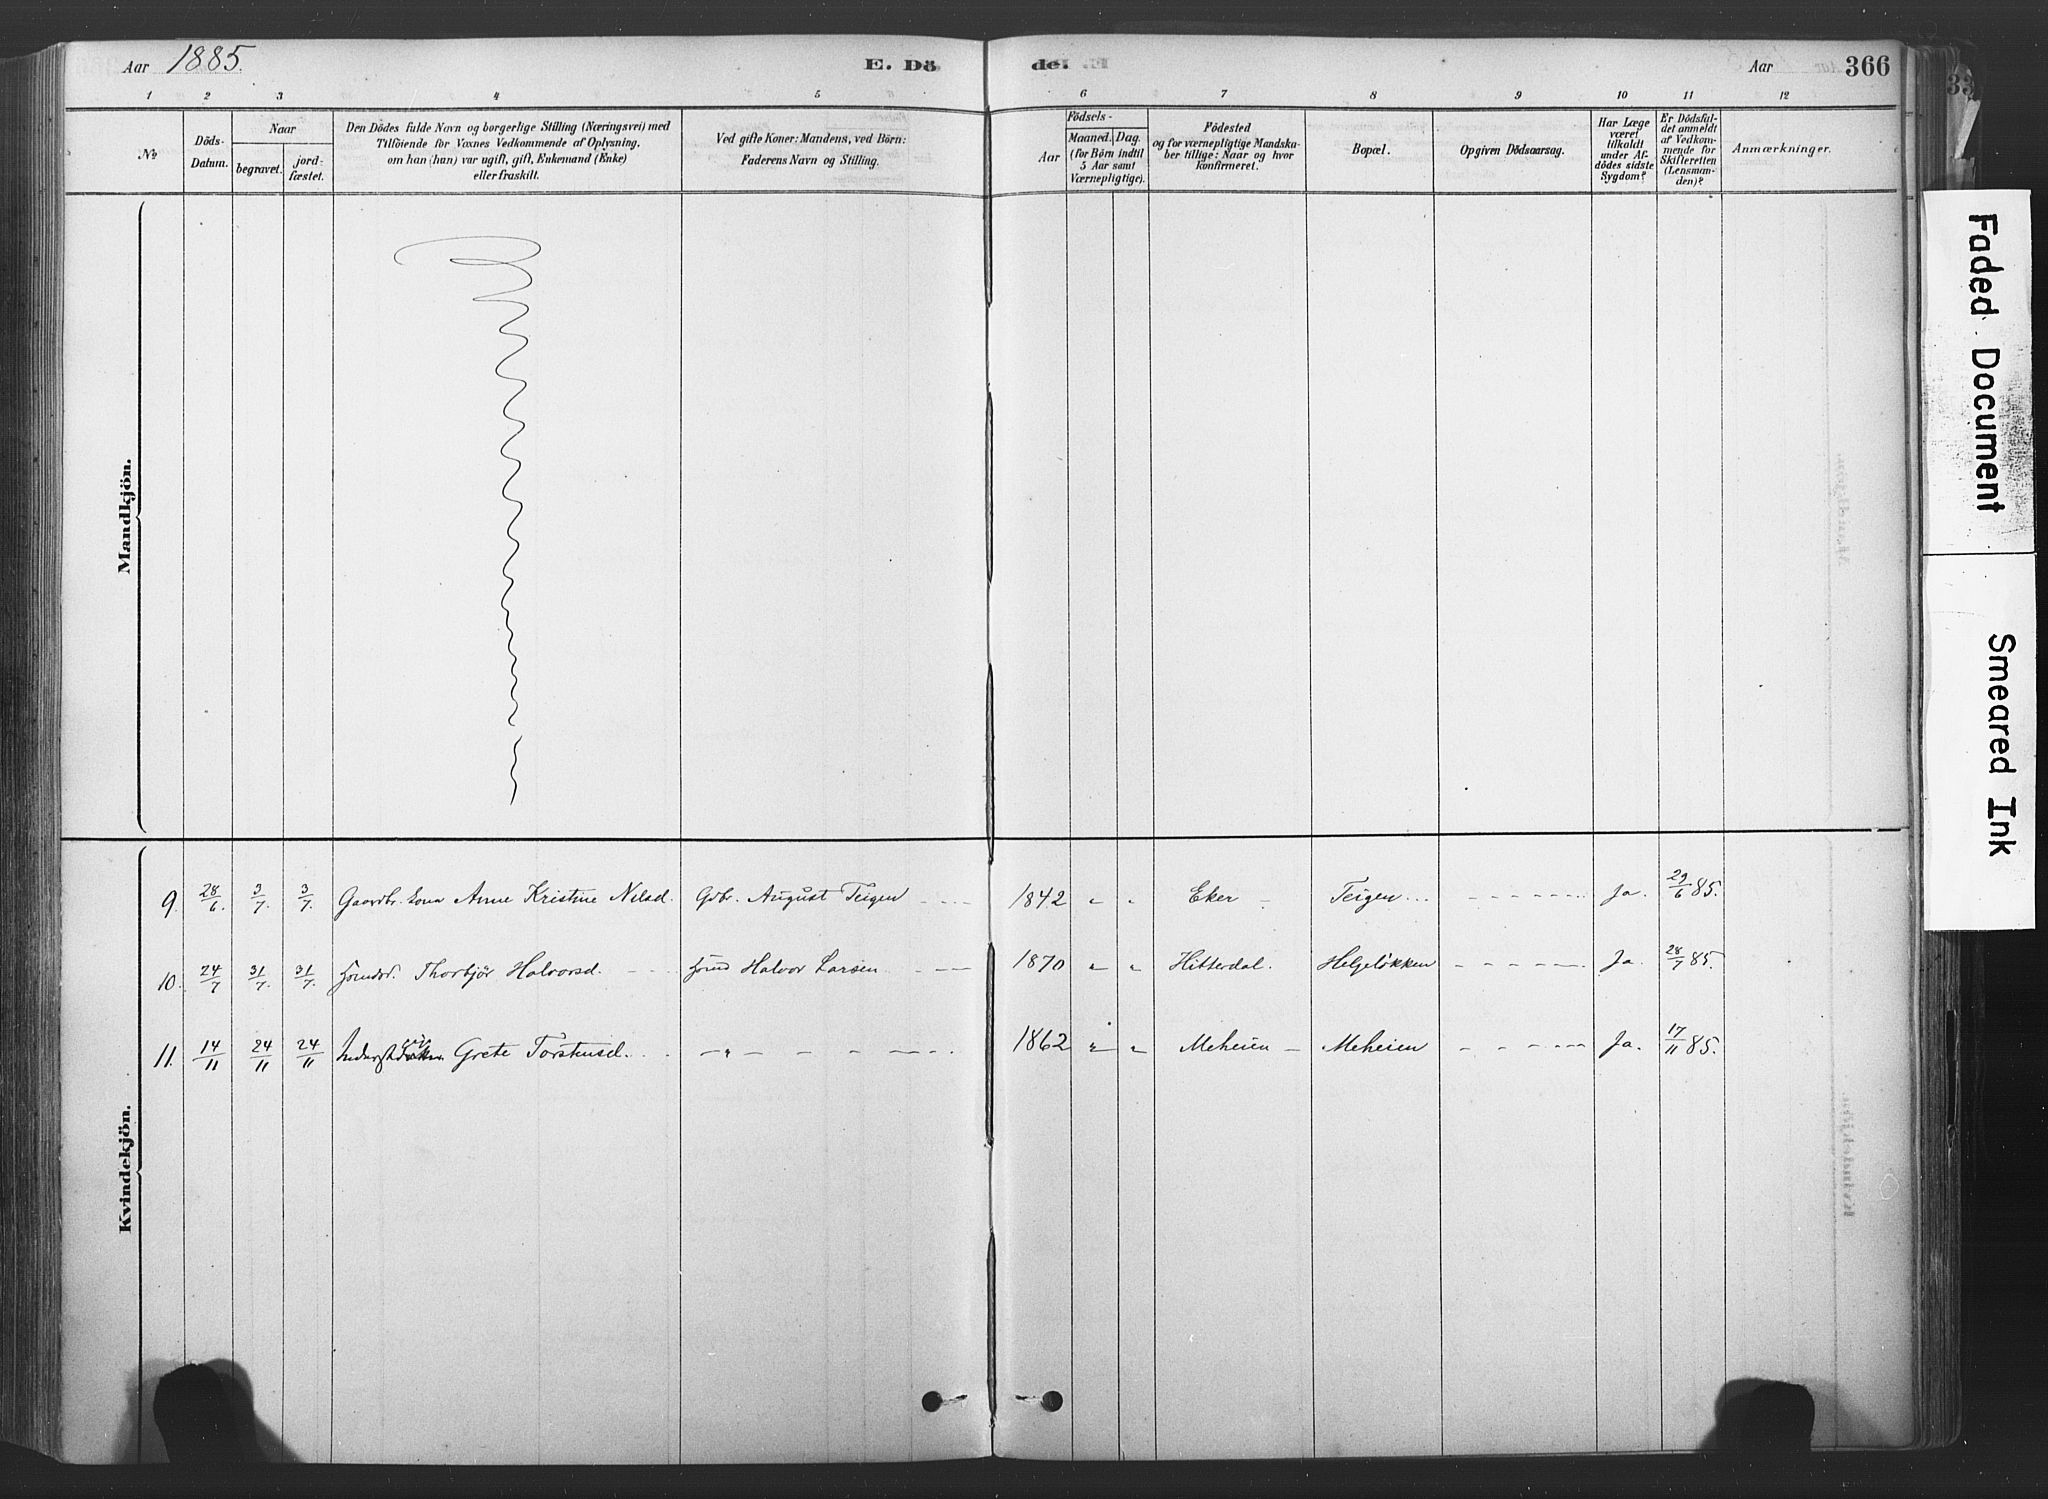 Aar 1885. E. Dö de. Aar 366
1 2 3 4 5 6 7 8 9 10 11 12
No
Döds-Datum.
Naar
begravet.
jord-fæstet.
Den Dödes fulde Navn og borgerlige Stilling (Næringsvei) med
Tilföiende for Voxnes Vedkommende af Oplysning,
om han (hun) var ugift, gift, Enkemand (Enke)
eller fraskilt.
Ved gifte Koner: Mandens, ved Börn:
Faderens Navn og Stilling.
Födsels-
Aar
Maaned. Dag.
(for Börn indtil
5 Aar samt
Værnepligtige).
Födested
og for værnepligtige Mandska-
ber tillige: Naar og hvor
konfirmeret.
Bopæl.
Opgiven Dödsaarsag.
Har Læge
været
tilkaldt
under Af-
dödes sidste
Sygdom?
Er Dödsfal-
det anmeldt
af Vedkom-
mende for
Skifteretten
(Lensman-
den)?
Anmærkninger.
Mandkjön.
Kvindekjön.
9. 28/6 3/7 3/7 Gaardbr. kona Anne Kristine Nilsd. Gdbr. August Teigen 1842 " " Eker Teigen Ja. 29/6 85.
10. 24/7 31/7 31/7 Thorbjør Halvorsd. Halvor Larsen 1870 " " Hitterdal. Helgeløkken Ja. 28/7 85.
11. 14/11 24/11 24/11 Grete Torstensd. " 1862 " " Meheien Meheien Ja. 17/11 85.
Faded Document
Smeared Ink
33